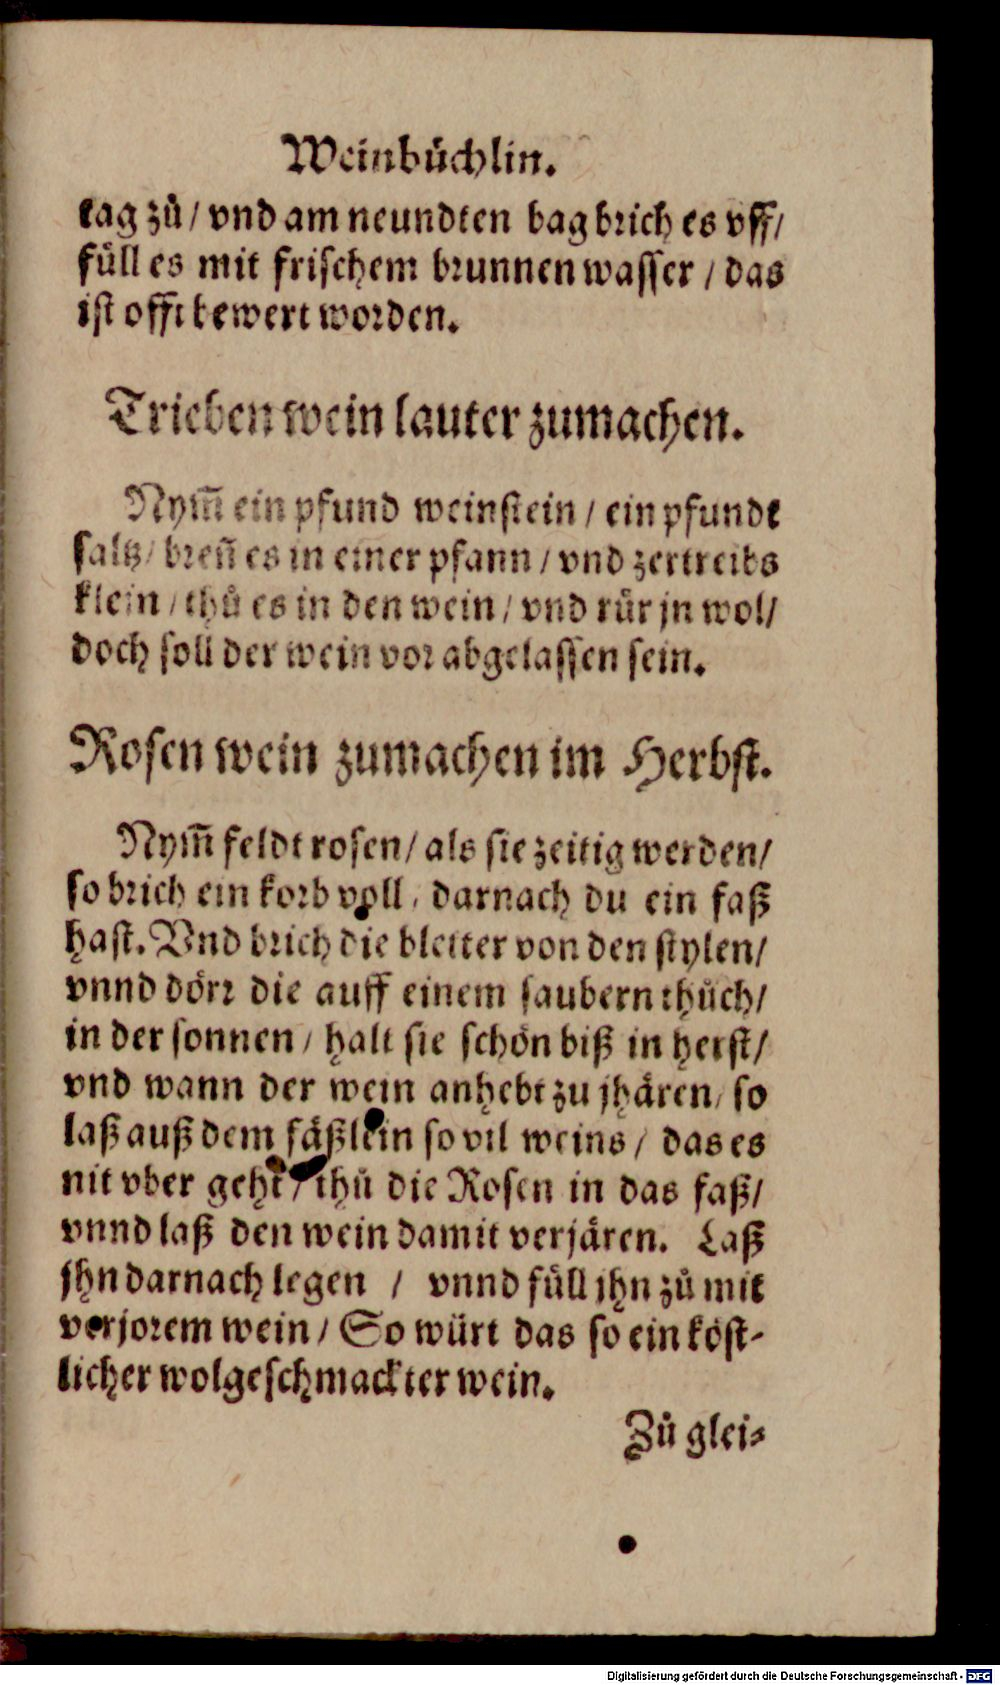 Weinbüchlin.
tag zů / vnd am neundten bag brich es vff /
füll es mit frischem brunnen wasser / das
ist offt bewert worden.
Trieben wein lauter zumachen.
Nym̅ ein pfund weinstein / ein pfundt
saltz / bren̅ es in einer pfann / vnd zertreibs
klein / thů es in den wein / vnd rür jn wol /
doch soll der wein vor abgelassen sein.
Rosen wein zumachen im Herbst.
Nym̅ feldt rosen / als sie zeitig werden /
so brich ein korb voll / darnach du ein faß
hast. Vnd brich die bletter von den stylen /
vnnd dörr die auff einem saubern thůch /
in der sonnen / halt sie schön biß in herst /
vnd wann der wein anhebt zu jhären / so
laß auß dem fäßlein so vil weins / das es
nit vber geht / thů die Rosen in das faß /
vnnd laß den wein damit verjären. Laß
jhn darnach legen / vnnd füll jhn zů mit
verjorem wein / So würt das so ein köst-
licher wolgeschmackter wein.
Zů glei-
Digitalisierung gefördert durch die Deutsche Forschungsgemeinschaft - DFG